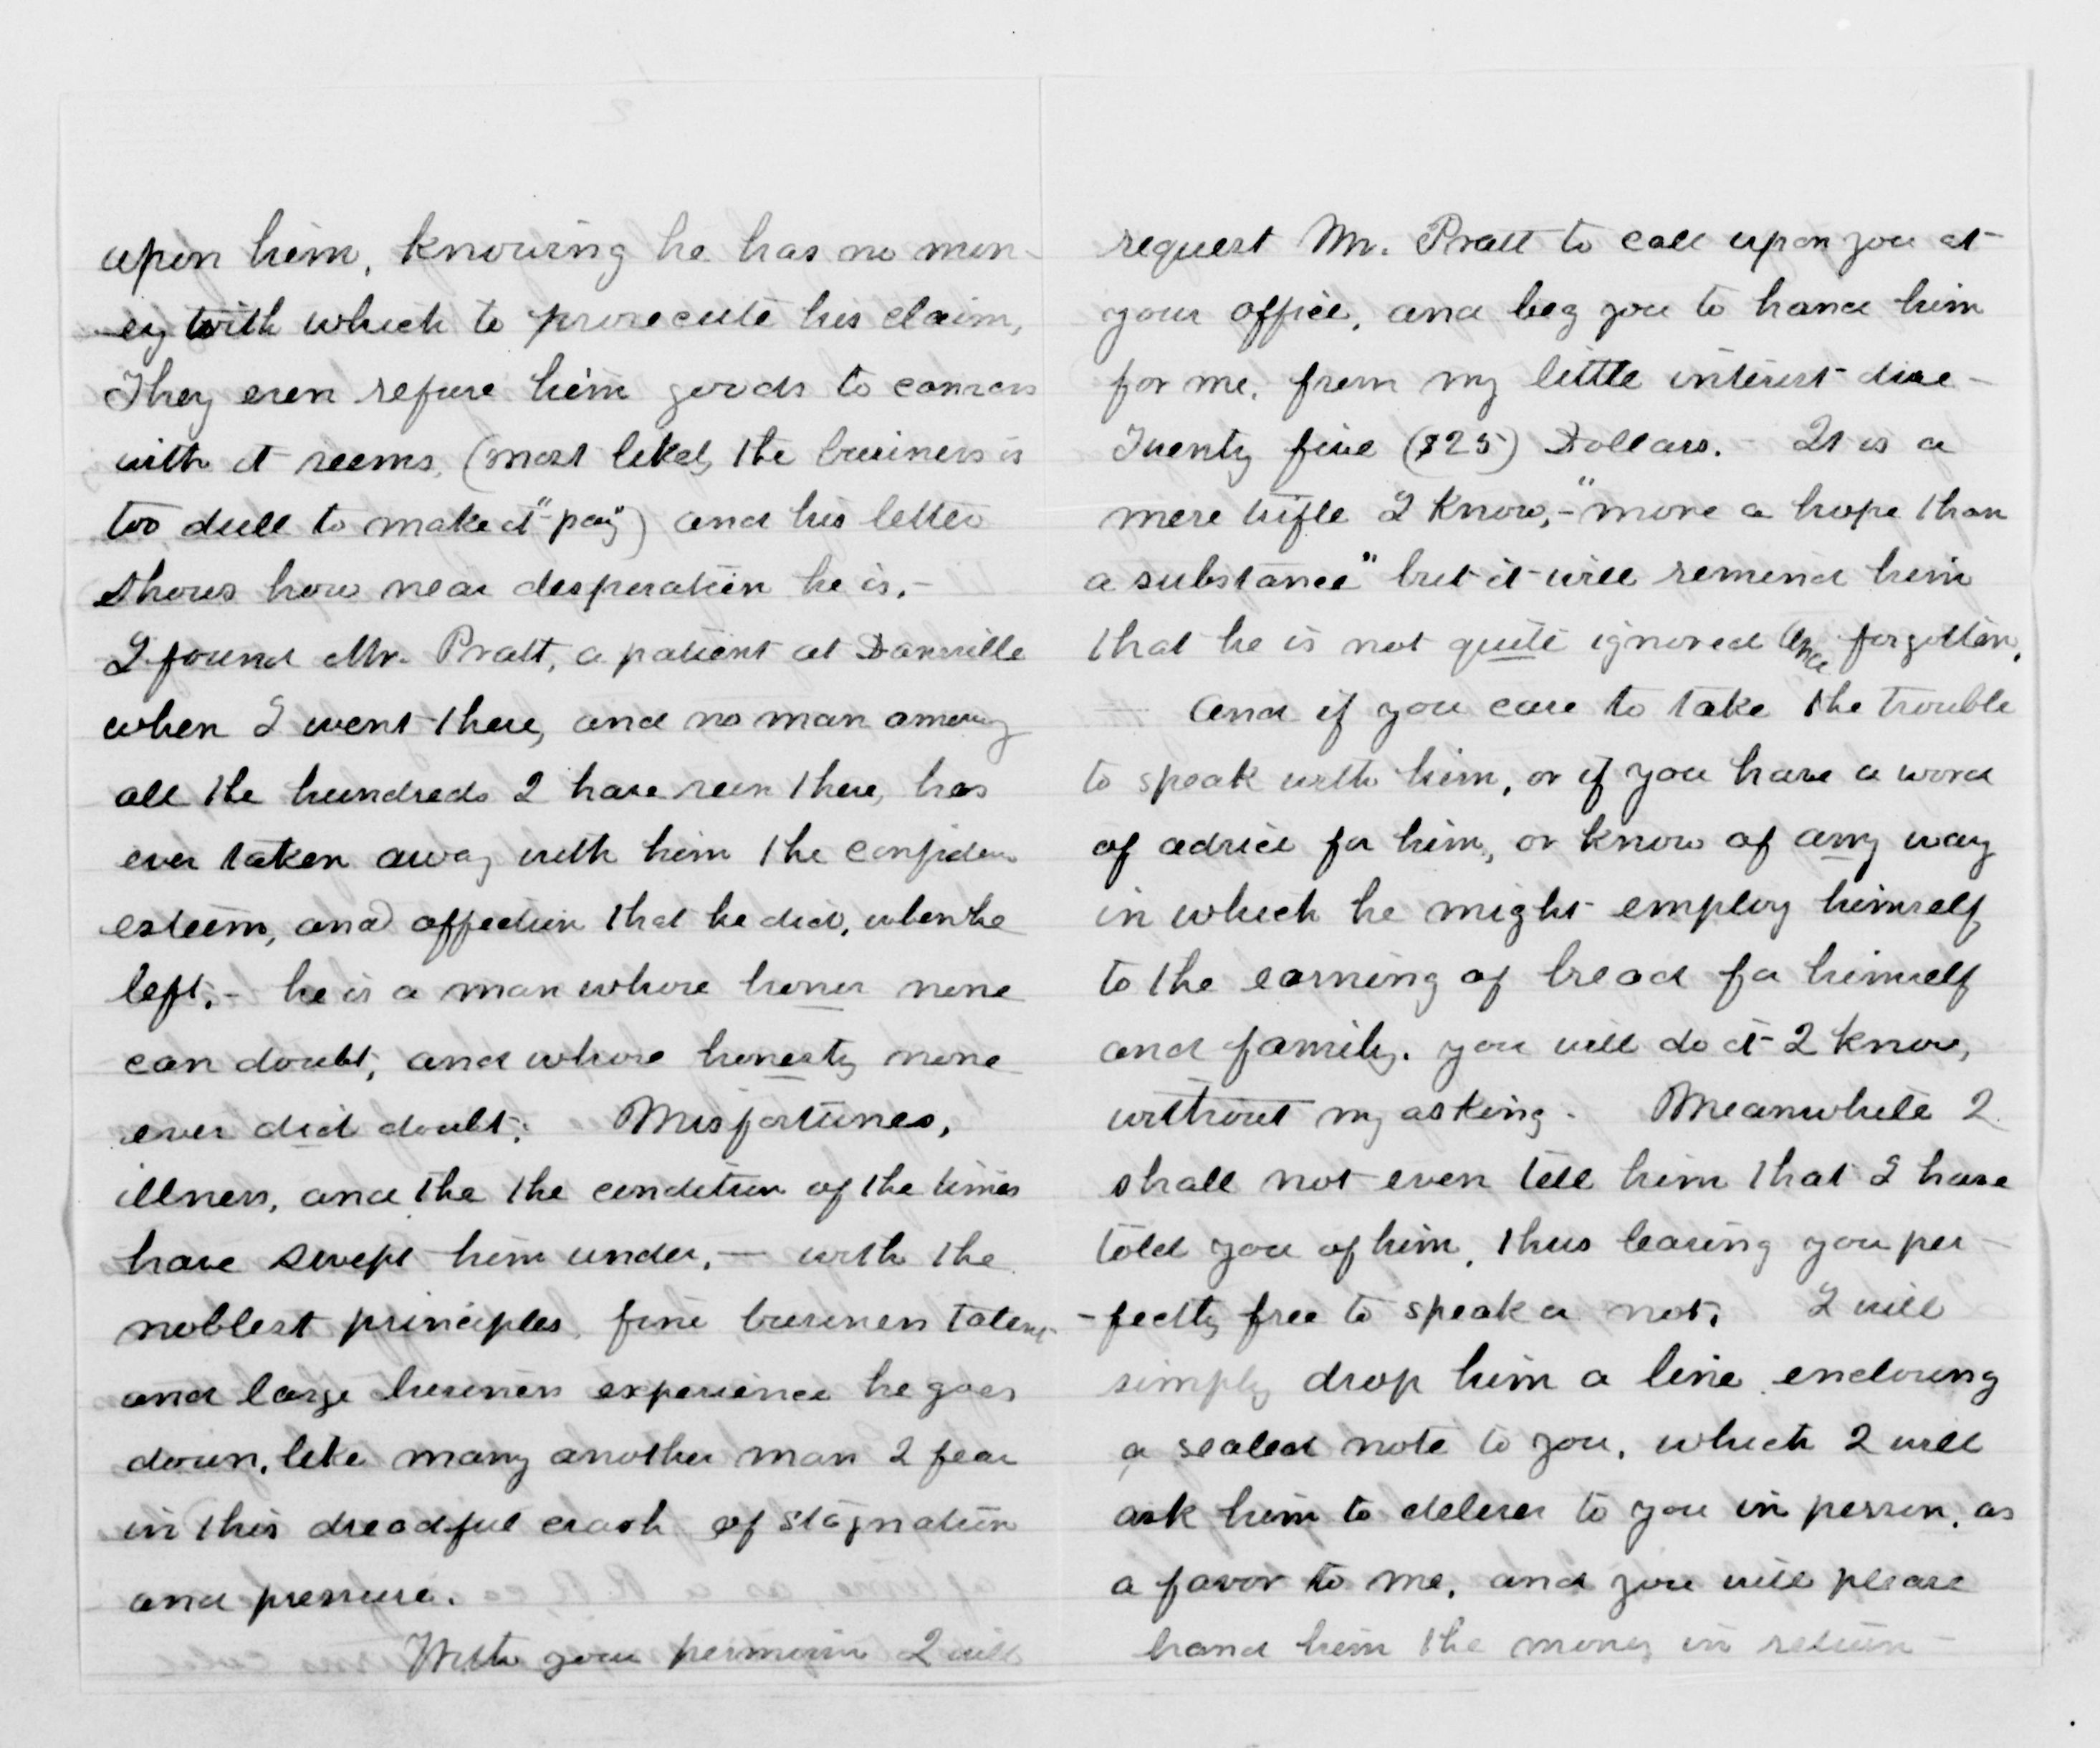 upon him, knowing he has no mon-
ey with which to prosecute his claim,
They even refuse him goods to canvass
with it seems, (most likely the business is
too dull to make it "pay") and his letter
shows how near desperation he is. -
I found Mr. Pratt, a patient at Dansville
when I went there, and no man among
all the hundreds I have seen there, has
ever taken away with him the confiden
esteem, and affection that he did, when he
left, - he is a man whose honor none
can doubt, and whose honesty none
ever did doubt. Misfortunes,
illness, and the the condition of the times
have swept him under, — with the
noblest principles, fine business talent
and large business experience he goes
down, like many another man I fear
in this dreadful crash of stagnation
and pressure.
With your permission I will
request Mr. Pratt to call upon you at
your office, and beg you to hand him
for me, from my little interest due -
Twenty five ($25) Dollars. - It is a
mere trifle I know, - "more a hope than
a substance" but it will remind him
that he is not quite ignored and forgotten.
And if you care to take the trouble
to speak with him, or if you have a word
of advice for him, or know of any way
in which he might employ himself
to the earning of bread for himself
and family. you will do it I know,
without my asking. Meanwhile I
shall not even tell him that I have
told you of him, thus leaving you per-
-fectly free to speak or not. I will
simply drop him a line enclosing
a sealed note to you, which I will
ask him to deliver to you in person, as
a favor to me, and you will please
hand him the money in return -